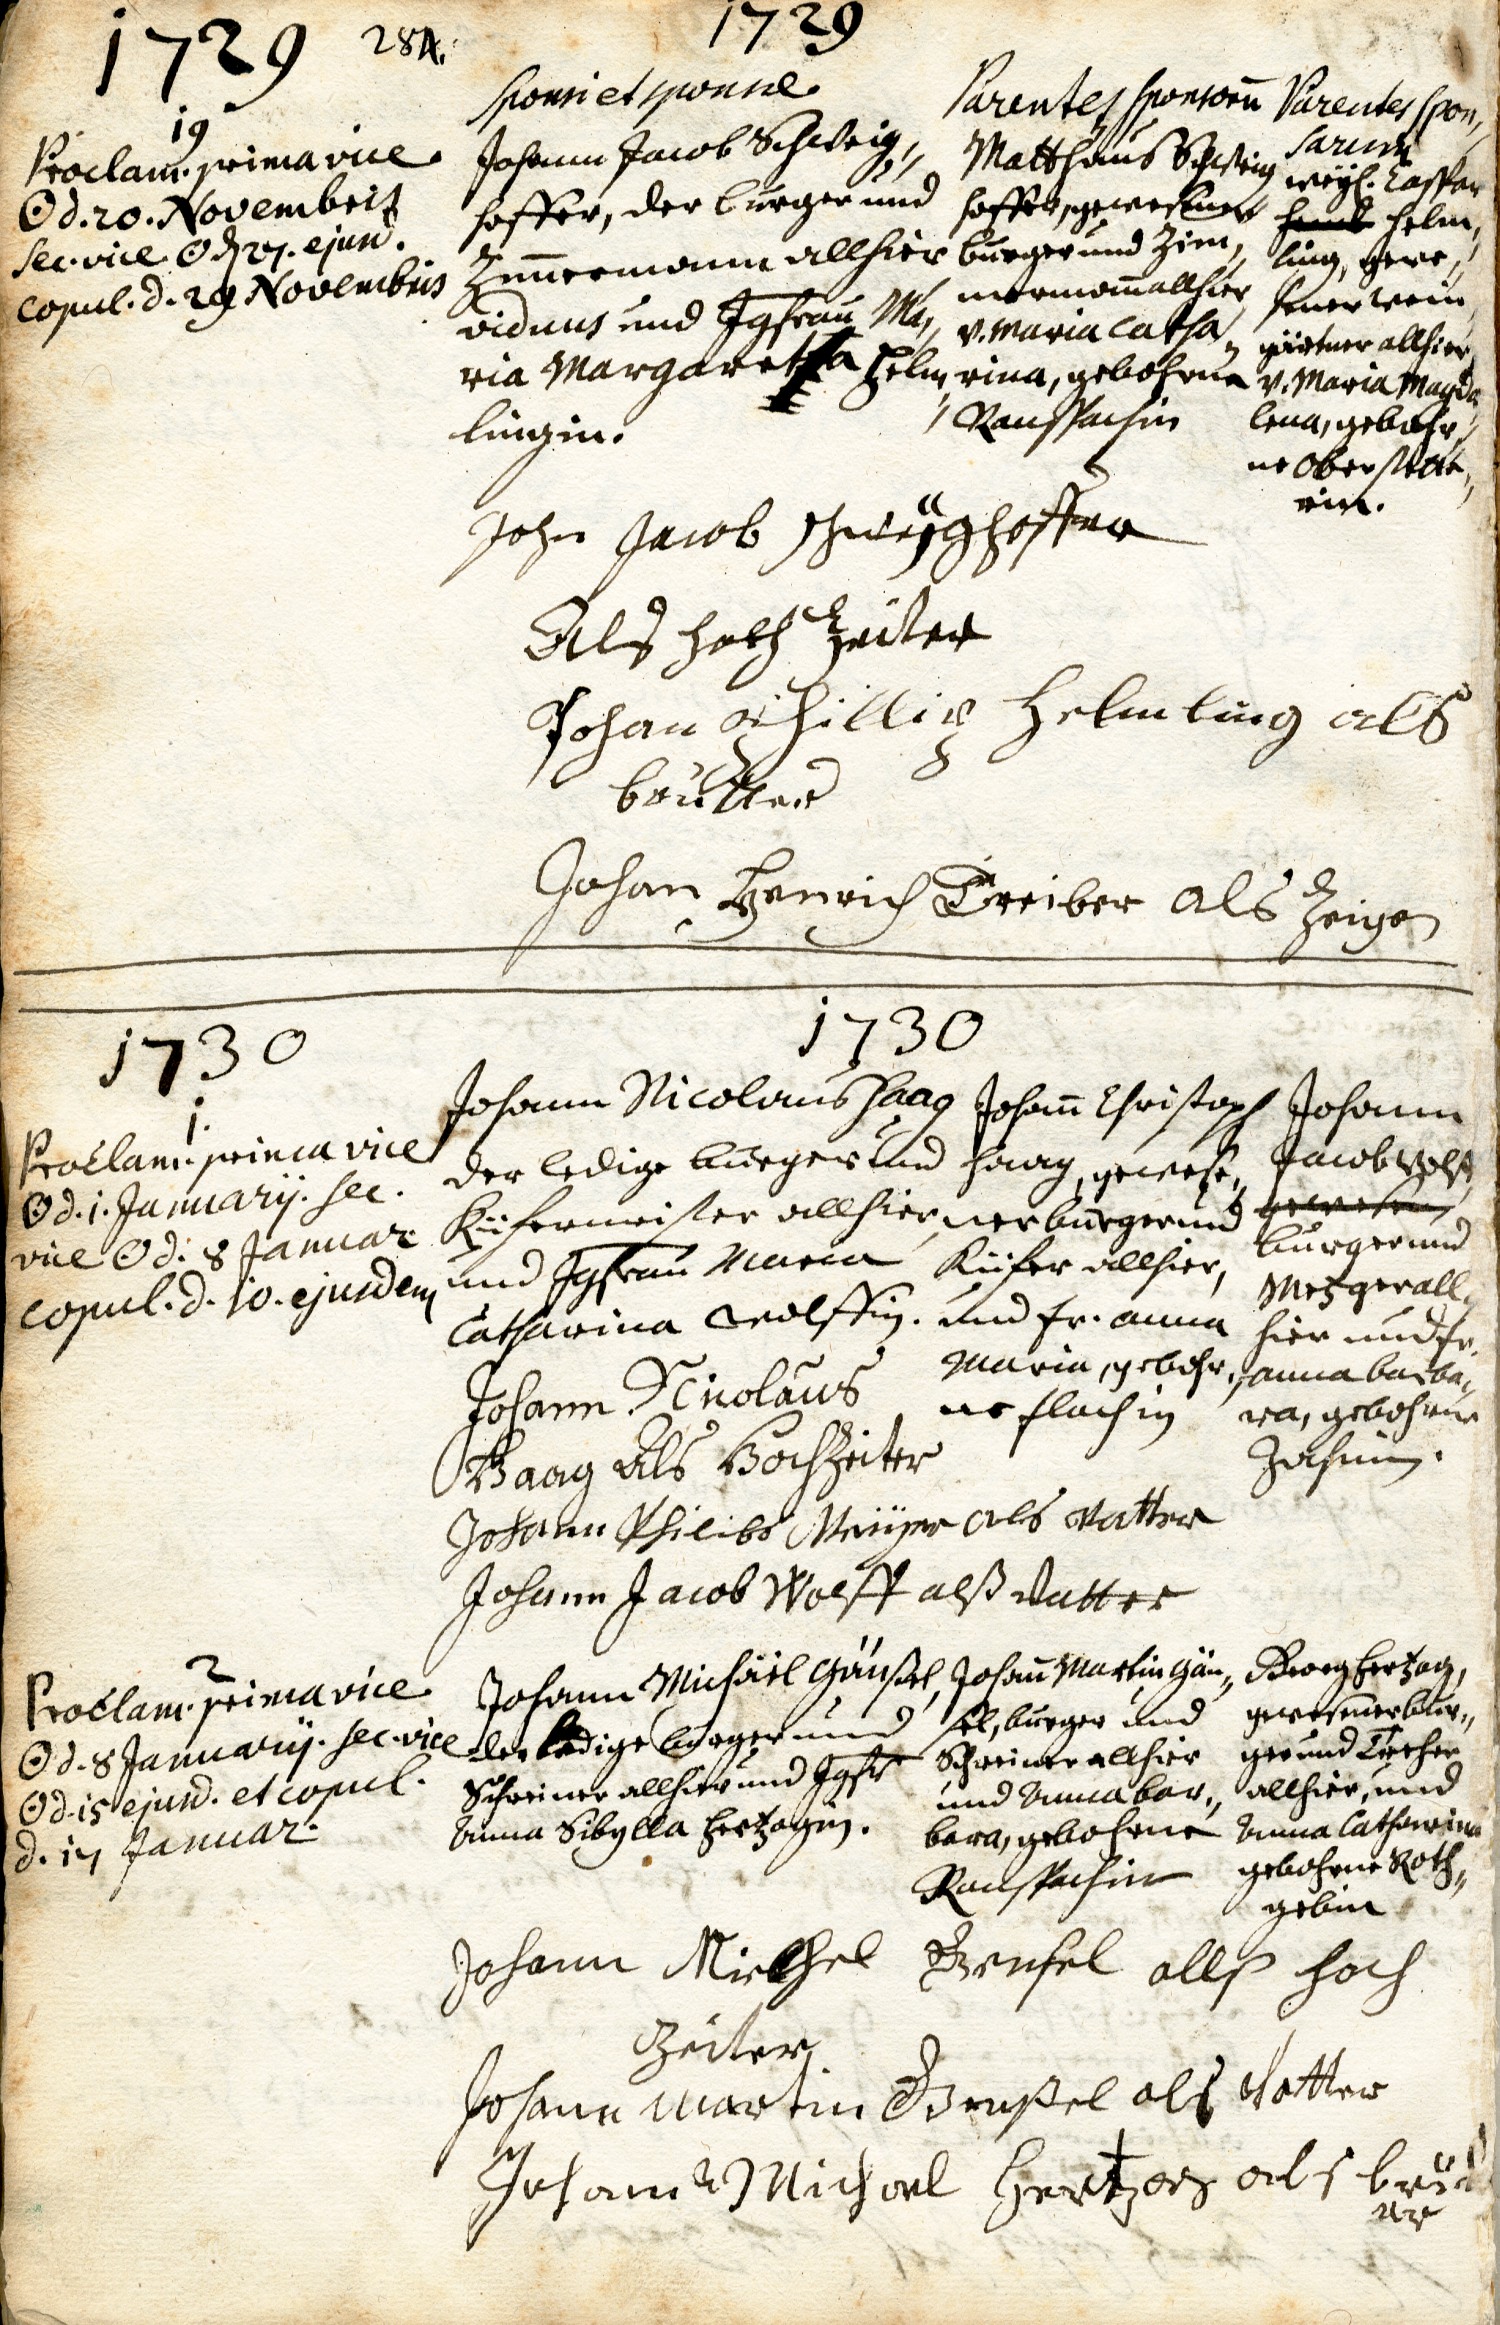 1729 284. 1729
19
Proclam. prima vice
⊙ d. 20. Novembris
sec. vice ⊙ d 27. ejusd.
copul. d. 29 Novembris
sponsi et sponsae
Johann Jacob Schweig„
hoffer, der burger und
Zimmermann allhier
viduus und Jgfrau Ma„
ria Margaretha Helm„
lingin.
Parentes sponsorum
Matthäus Schweig
hoffer, gewesener
burger und Zim„
mermann allhier,
v. Maria Catha„
rina, gebohrne
Ranspachin
Parentes spon„
sarum
weyl. Caspar
Helm„
ling, gewe„
sener wein
gärtner allhier
v. Maria Magda
lena, gebohr„
ne Oberstett„
rin.
Johan Jacob schweyghoffer
Als hoch Zeiter
Johan Phillip Helmling als
brutter
Johan Henrich Treiber als Zeigen
1730 1730
1.
Proclam. prima vice
⊙ d. 1. Januarij. sec.
vice ⊙ d. 8 Januar
copul. d. 10. ejusdem
Johann Nicolaus Haag
der ledige burger und
Küfermeister allhier,
und Jgfrau Maria
Catharina Wolffin.
Johann Christoph
Haag, gewese„
ner burger und
Küfer allhier,
und fr. Anna
Maria, gebohr„
ne Flachin
Johann
Jacob Wolff
gewesen
burger und
Metzger all„
hier und fr.
Anna Barba„
ra, gebohrne
Zahnin.
Johann Nicolaus
Haag Als HochZeiter
Johann Philibs Meüyer als Vatter
Johann Jacob Wolff alß Vatter
2
Proclam. prima vice
⊙ d. 8 Januarij. sec. vice
⊙ d. 15 ejusd. et copul.
d. 17 Januar.
Johann Michäel Gänßel,
der ledige burger und
Schreiner allhier und Jgfr
Anna Sibylla Hertzogin.
Johann Martin Gän„
sel, burger und
Schreiner allhier
und Anna Bar„
bara, gebohrne
Ranspachin
Georg Hertzog,
gewesener bur„
ger und
allhier, und
Anna Catharina
gebohrne Roth„
gebin
Johann Michel Gensel allß hoch
Zeiter
Johann Martin Genßel als Vatter
Johann Michael Hertzog als brud
er